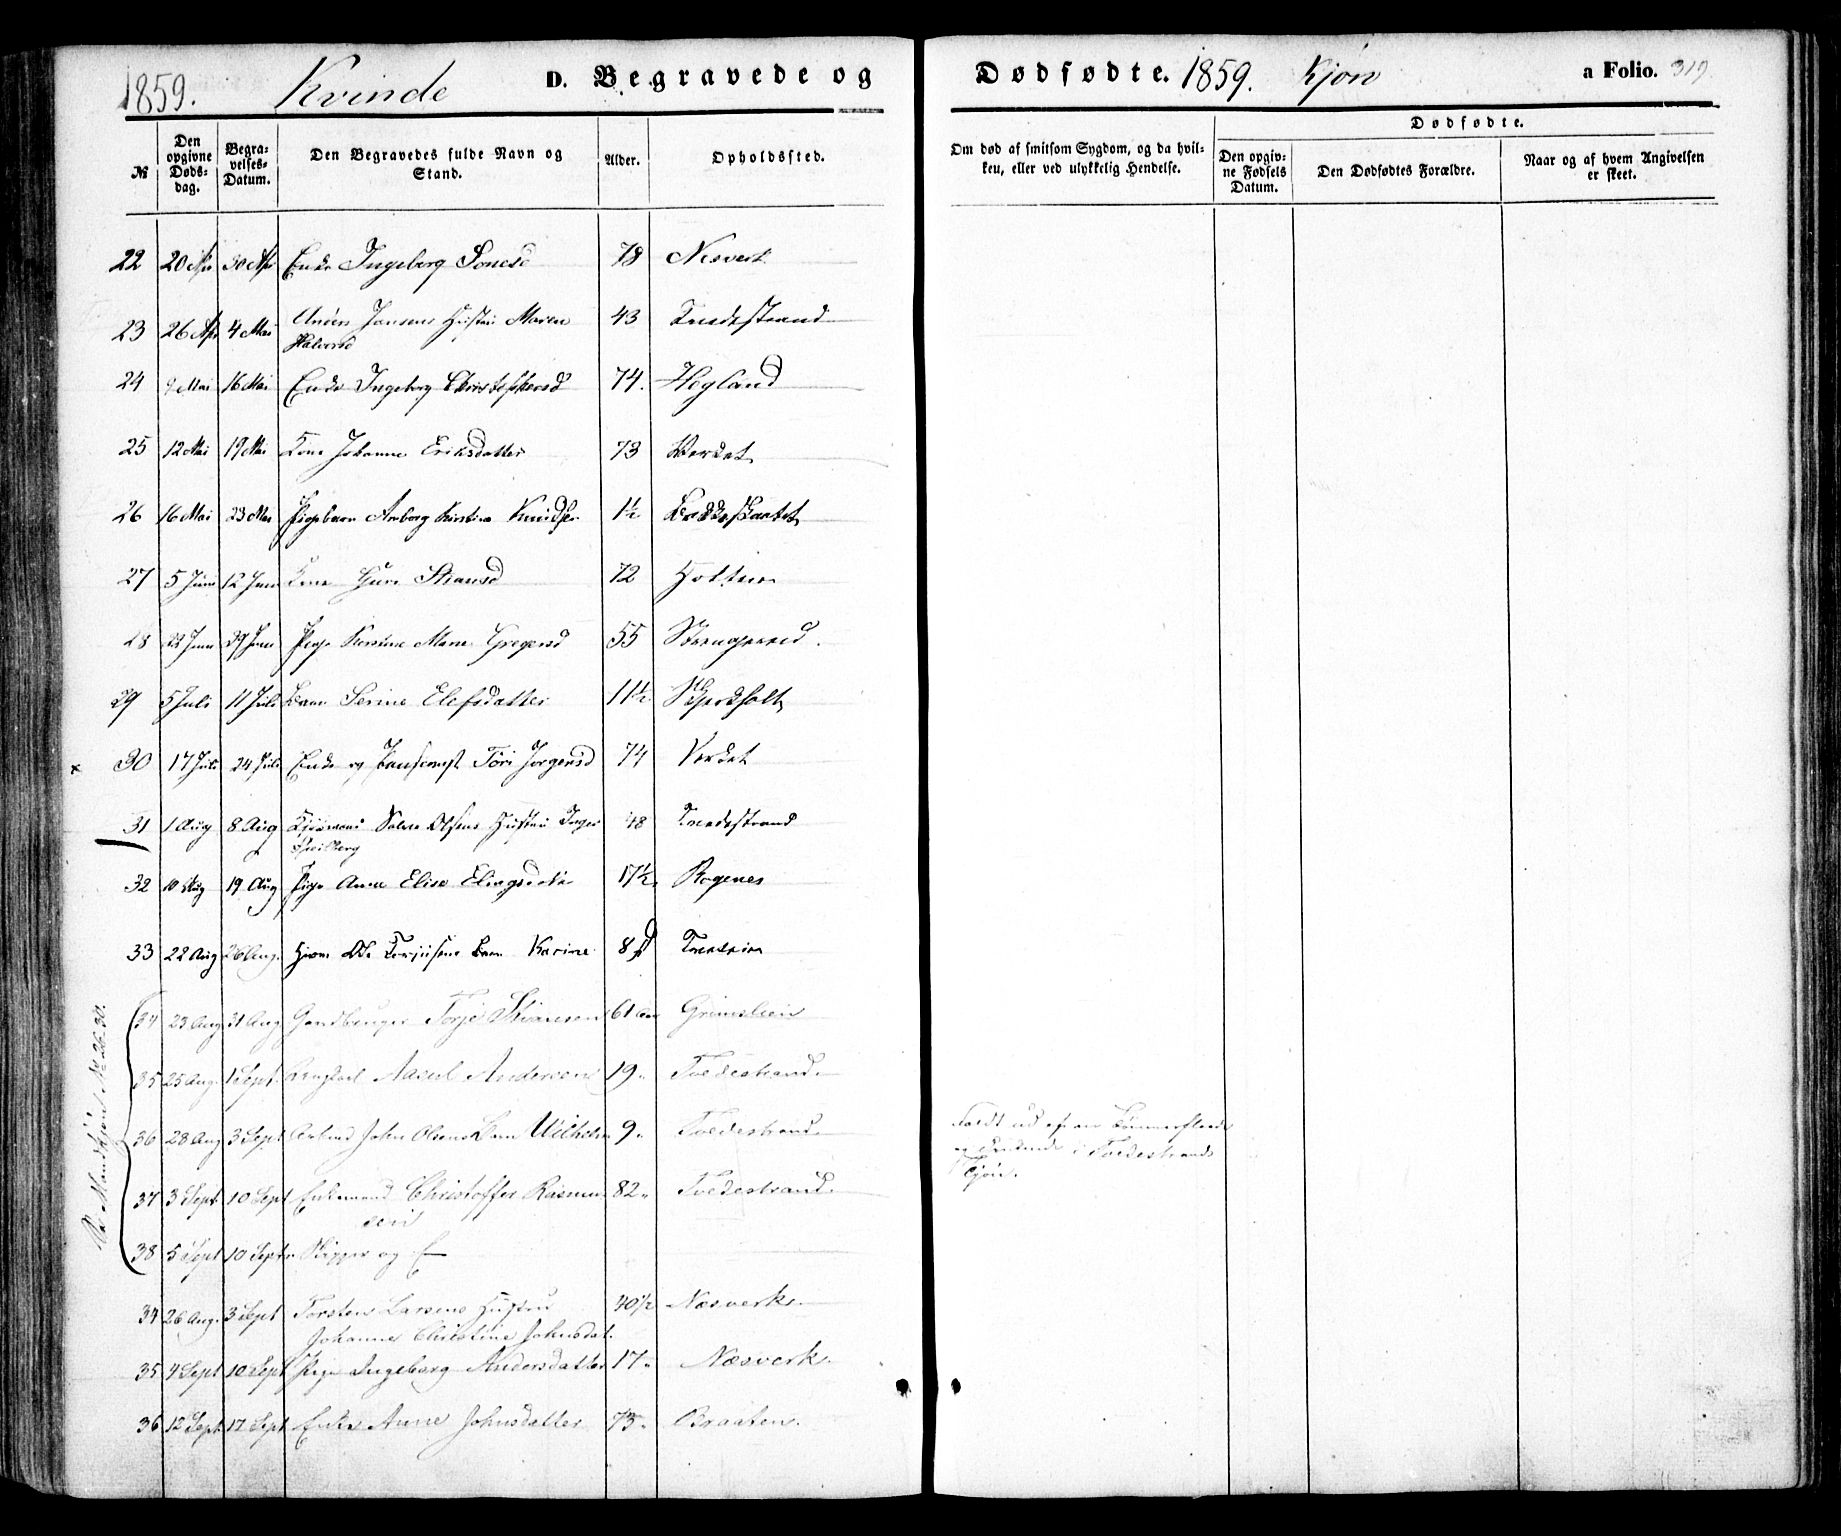 1859. Kvinde D. Begravede og
Dødfødte. 1859. Kjøn a Folio. 319
№ Den opgivne Døds-dag. Begra-velses-Datum. Den Begravedes fulde Navn og Stand. Alder. Opholdssted. Om død af smitsom Sygdom, og da hvil-ken, eller ved ulykkelig Hendelse. Dødfødte. Den opgiv-ne Fødsels Datum. Den Dødfødtes Forældre. Naar og af hvem Angivelsen er skeet.
22 20 Apr 30 Apr Enke Ingeborg 78 Nesverk
23 26 Apr 4 Mai Anders Jansens Hustru Maren 43 Tvedestrand
Halvorsd
24 9 Mai 16 Mai Enke Ingeborg Christophersd 74. Hegland
25 12 Mai 19 Mai Kone Johanne Eriksdatter 73 Verket
26 16 Mai 23 Mai Pigebarn Anborg Kirstine Knudsen 1½
27 5 Juni 12 Juni Kone 72 Holtene
28 22 Juni 29 Juni Pige Kirstine Marie Gregersd 55 Strengereid.
29 5 Juli 11 Juli Barn Serine Elefsdatter 11½ Skjerkholt
x 30 17 Juli 24 Juli Enke og Tori Jørgensd 74 Verket
31 1 Aug 8 Aug Olsens Hustru Inger 48 Tvedestrand
32 10 Aug 19 Aug Pige Anne Elise 17½ Ragenes
33 22 Aug 26 Aug. Ole Terjusens Barn Karine 8 d
34 23 Aug 31 Aug Gaardbruger Torje 61 Grimslien
35 25 Aug. 1 Sept. Ungkarl Aasul Andersen 19. Tvedestrand.
36 28 Aug 3 Sept John Olsens Barn Wilhelm 9. Tvedestrand. Faldt ud af en Tømmerflaade
og druknede i Tvedestrands
Kjøn.
37 3 Sept 10 Sept Enkemand Christoffer Rasmus 82. Tvedestrand.
sen
38 5 Sept 10 Sept Skipper og E
Se Mandkjøn № 26-30.
34 26 Aug. 3 Sept Torsten Larsens Hustru 40½ Næsverk.
Johanne Christine Johnsdat.
35 4 Sept 10 Sept Pige Ingeborg Andersdatter 17. Næsverk.
36 12 Sept 17 Sept Enke Anne Johnsdatter 73. Braaten.